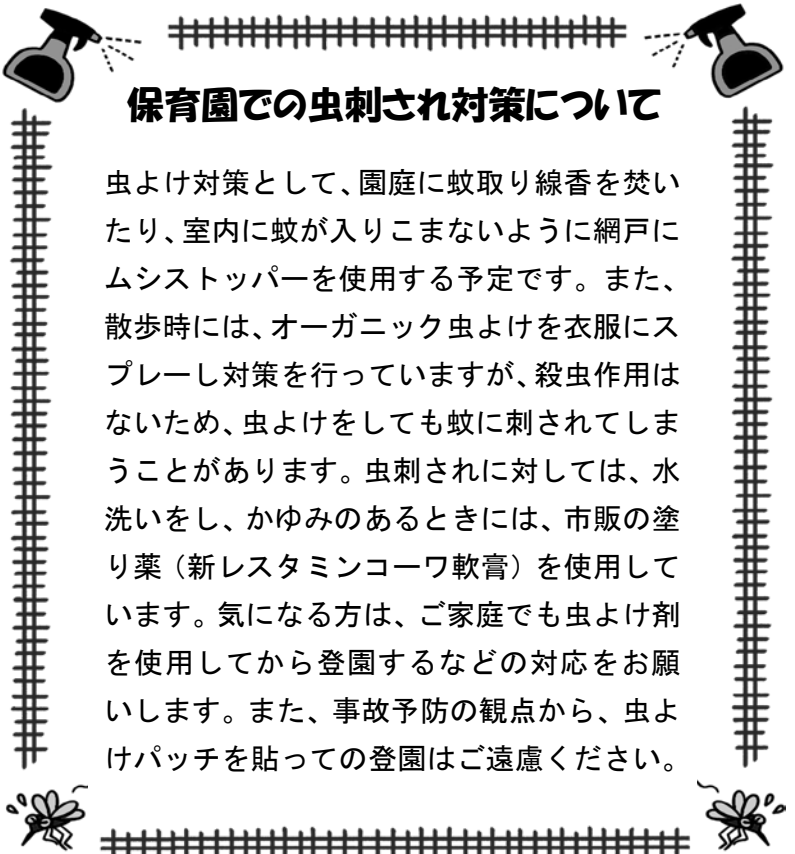 保育園での虫刺され対策について
虫よけ対策として、園庭に蚊取り線香を焚い
たり、室内に蚊が入りこまないように網戸に
ムシストッパーを使用する予定です。また、
散歩時には、オーガニック虫よけを衣服にス
プレーし対策を行っていますが、殺虫作用は
ないため、虫よけをしても蚊に刺されてしま
うことがあります。虫刺されに対しては、水
洗いをし、かゆみのあるときには、市販の塗
り薬（新レスタミンコーワ軟膏）を使用して
います。気になる方は、ご家庭でも虫よけ剤
を使用してから登園するなどの対応をお願
いします。また、事故予防の観点から、虫よ
けパッチを貼っての登園はご遠慮ください。